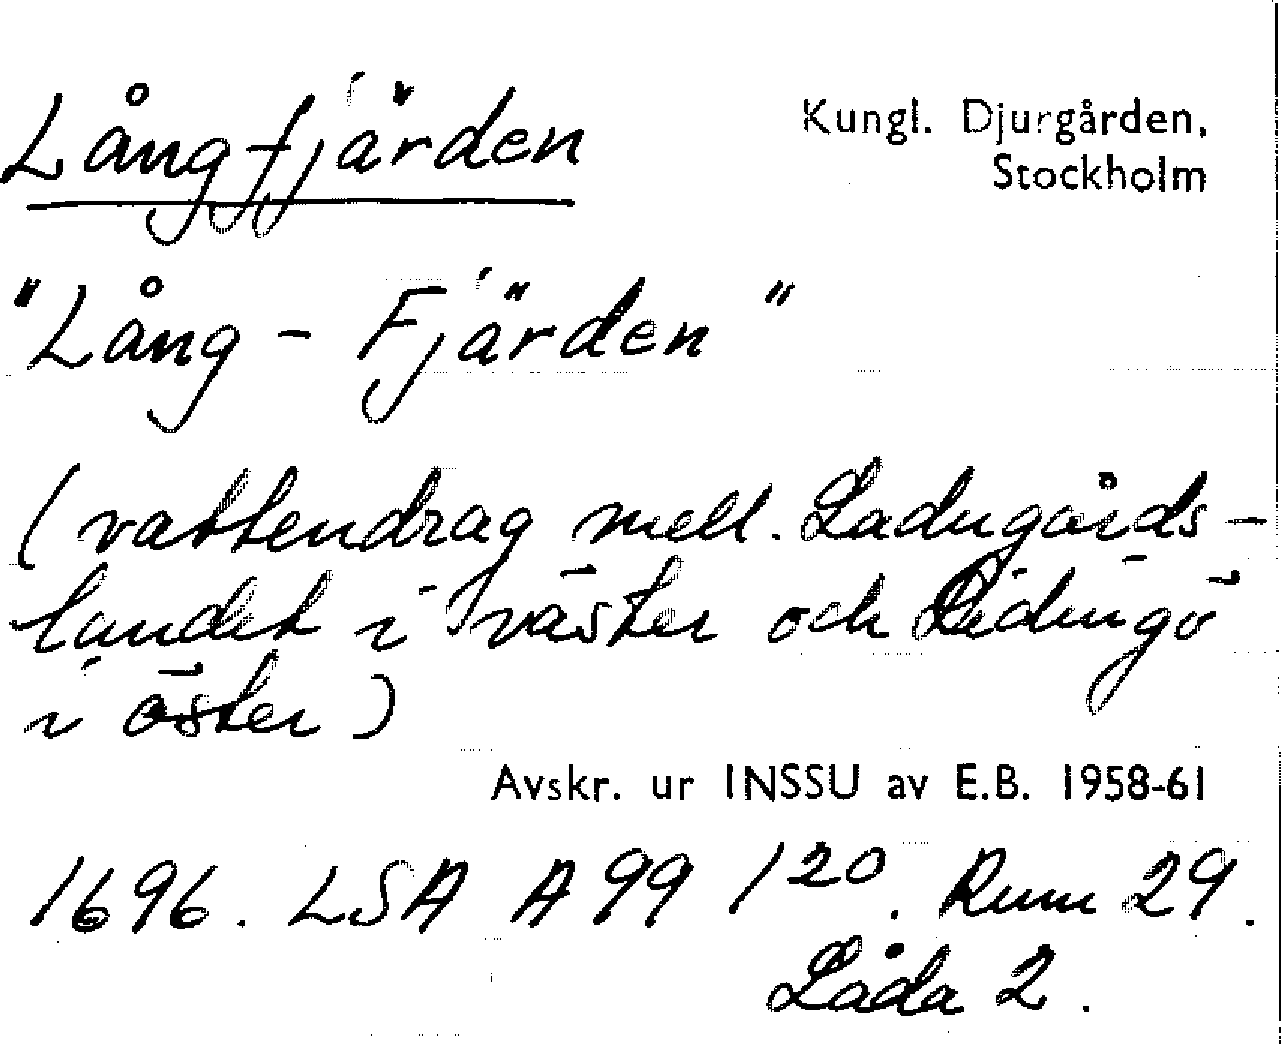 Långfjärden
Kungl. Djurgården,
Stockholm
"Lång - Fjärden"
(vattendrag mell. Ladugårds-
landet i väster och Lidingö
i öster)
Avskr. ur INSSU av E.B. 1958-61
1696. LSA A 99 1²⁰. Rum 29.
Låda 2.